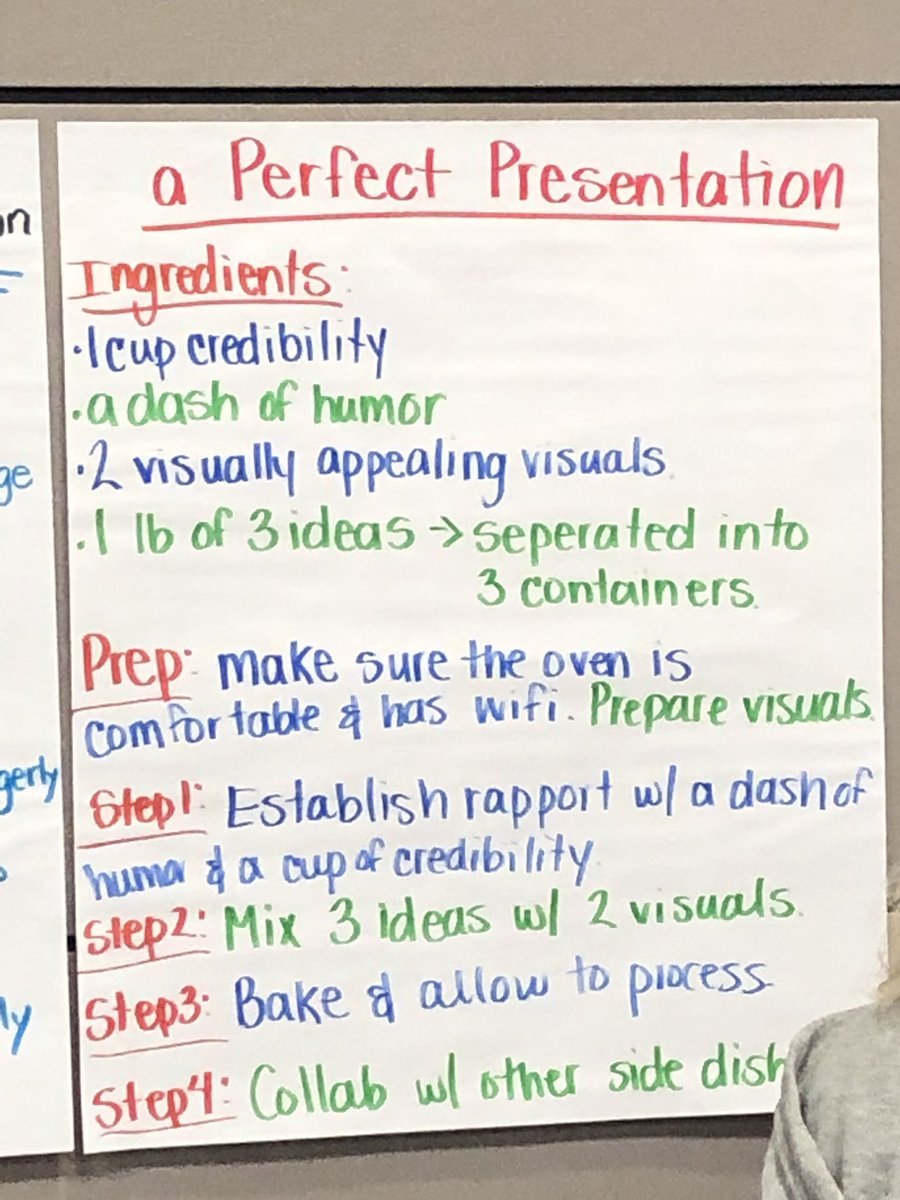 a Perfect Presentation
Ingredients:
·1 cup credibility
·a dash of humor
·2 visually appealing visuals.
·1 lb of 3 ideas → seperated into
3 containers.
Prep: make sure the oven is
comfortable & has wifi. Prepare visuals.
Step1: Establish rapport w/ a dash of
humor & a cup of credibility.
Step2: Mix 3 ideas w/ 2 visuals.
Step3: Bake & allow to process.
Step4: Collab w/ other side dish